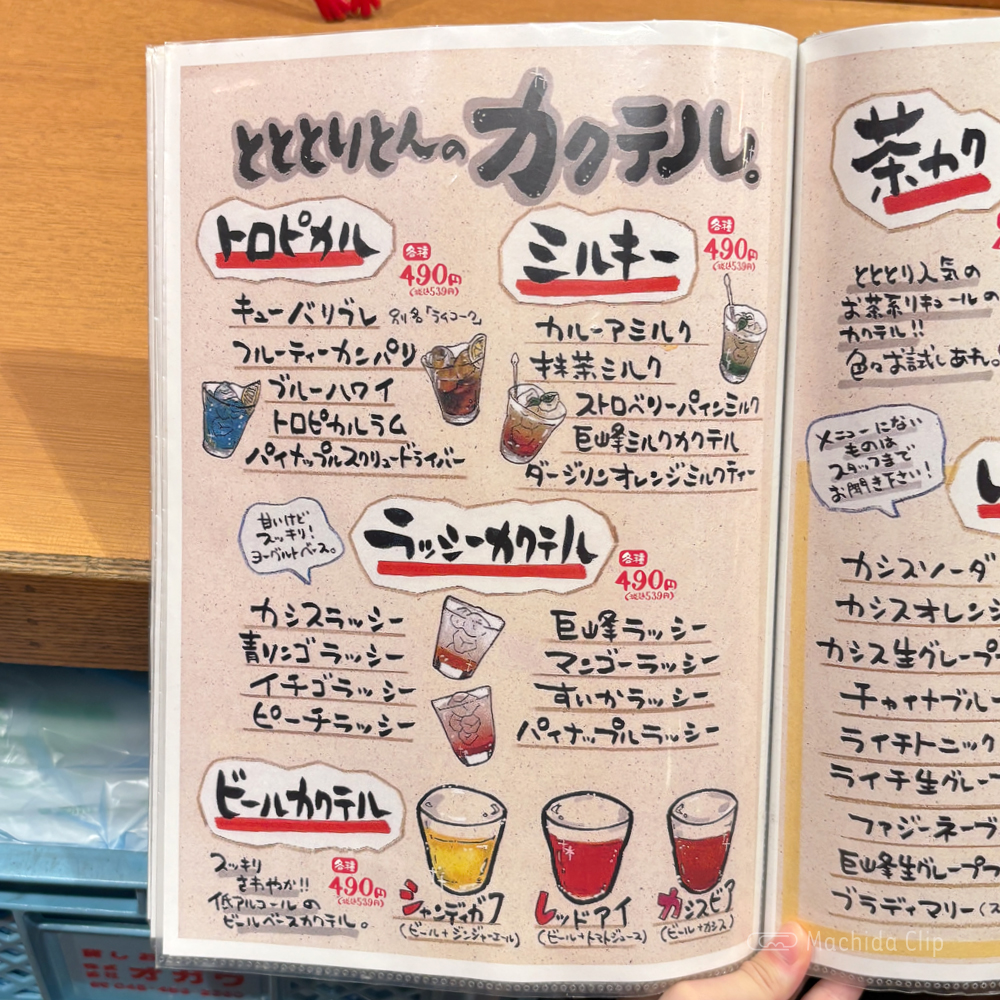 とととりとんのカクテル。
トロピカル
各種
490円
(税込539円)
キューバリブレ 別名「ラムコーク」
フルーティーカンパリ
ブルーハワイ
トロピカルラム
パイナップルスクリュードライバー
ミルキー
各種
490円
(税込539円)
カルーアミルク
抹茶ミルク
ストロベリーパインミルク
巨峰ミルクカクテル
ダージリンオレンジミルクティー
甘いけど
スッキリ!
ヨーグルトベース。
ラッシーカクテル
各種
490円
(税込539円)
カシスラッシー
青リンゴラッシー
イチゴラッシー
ピーチラッシー
巨峰ラッシー
マンゴーラッシー
すいかラッシー
パイナップルラッシー
ビールカクテル
スッキリ
さわやか!!
低アルコールの
ビールベースカクテル。
各種
490円
(税込539円)
シャンディガフ
(ビール+ジンジャーエール)
レッドアイ
(ビール+トマトジュース)
カシスビア
(ビール+カシス)
茶カク
とととり人気の
お茶系リキュールの
カクテル!!
色々お試しあれ。
メニューにない
ものは
スタッフまで
お聞き下さい!
カシスソーダ
カシスオレンジ
カシス生グレープ
チャイナブルー
ライチトニック
ライチ生グレー
ファジーネーブ
巨峰生グレープフ
ブラディマリー
Machida Clip
オガワ